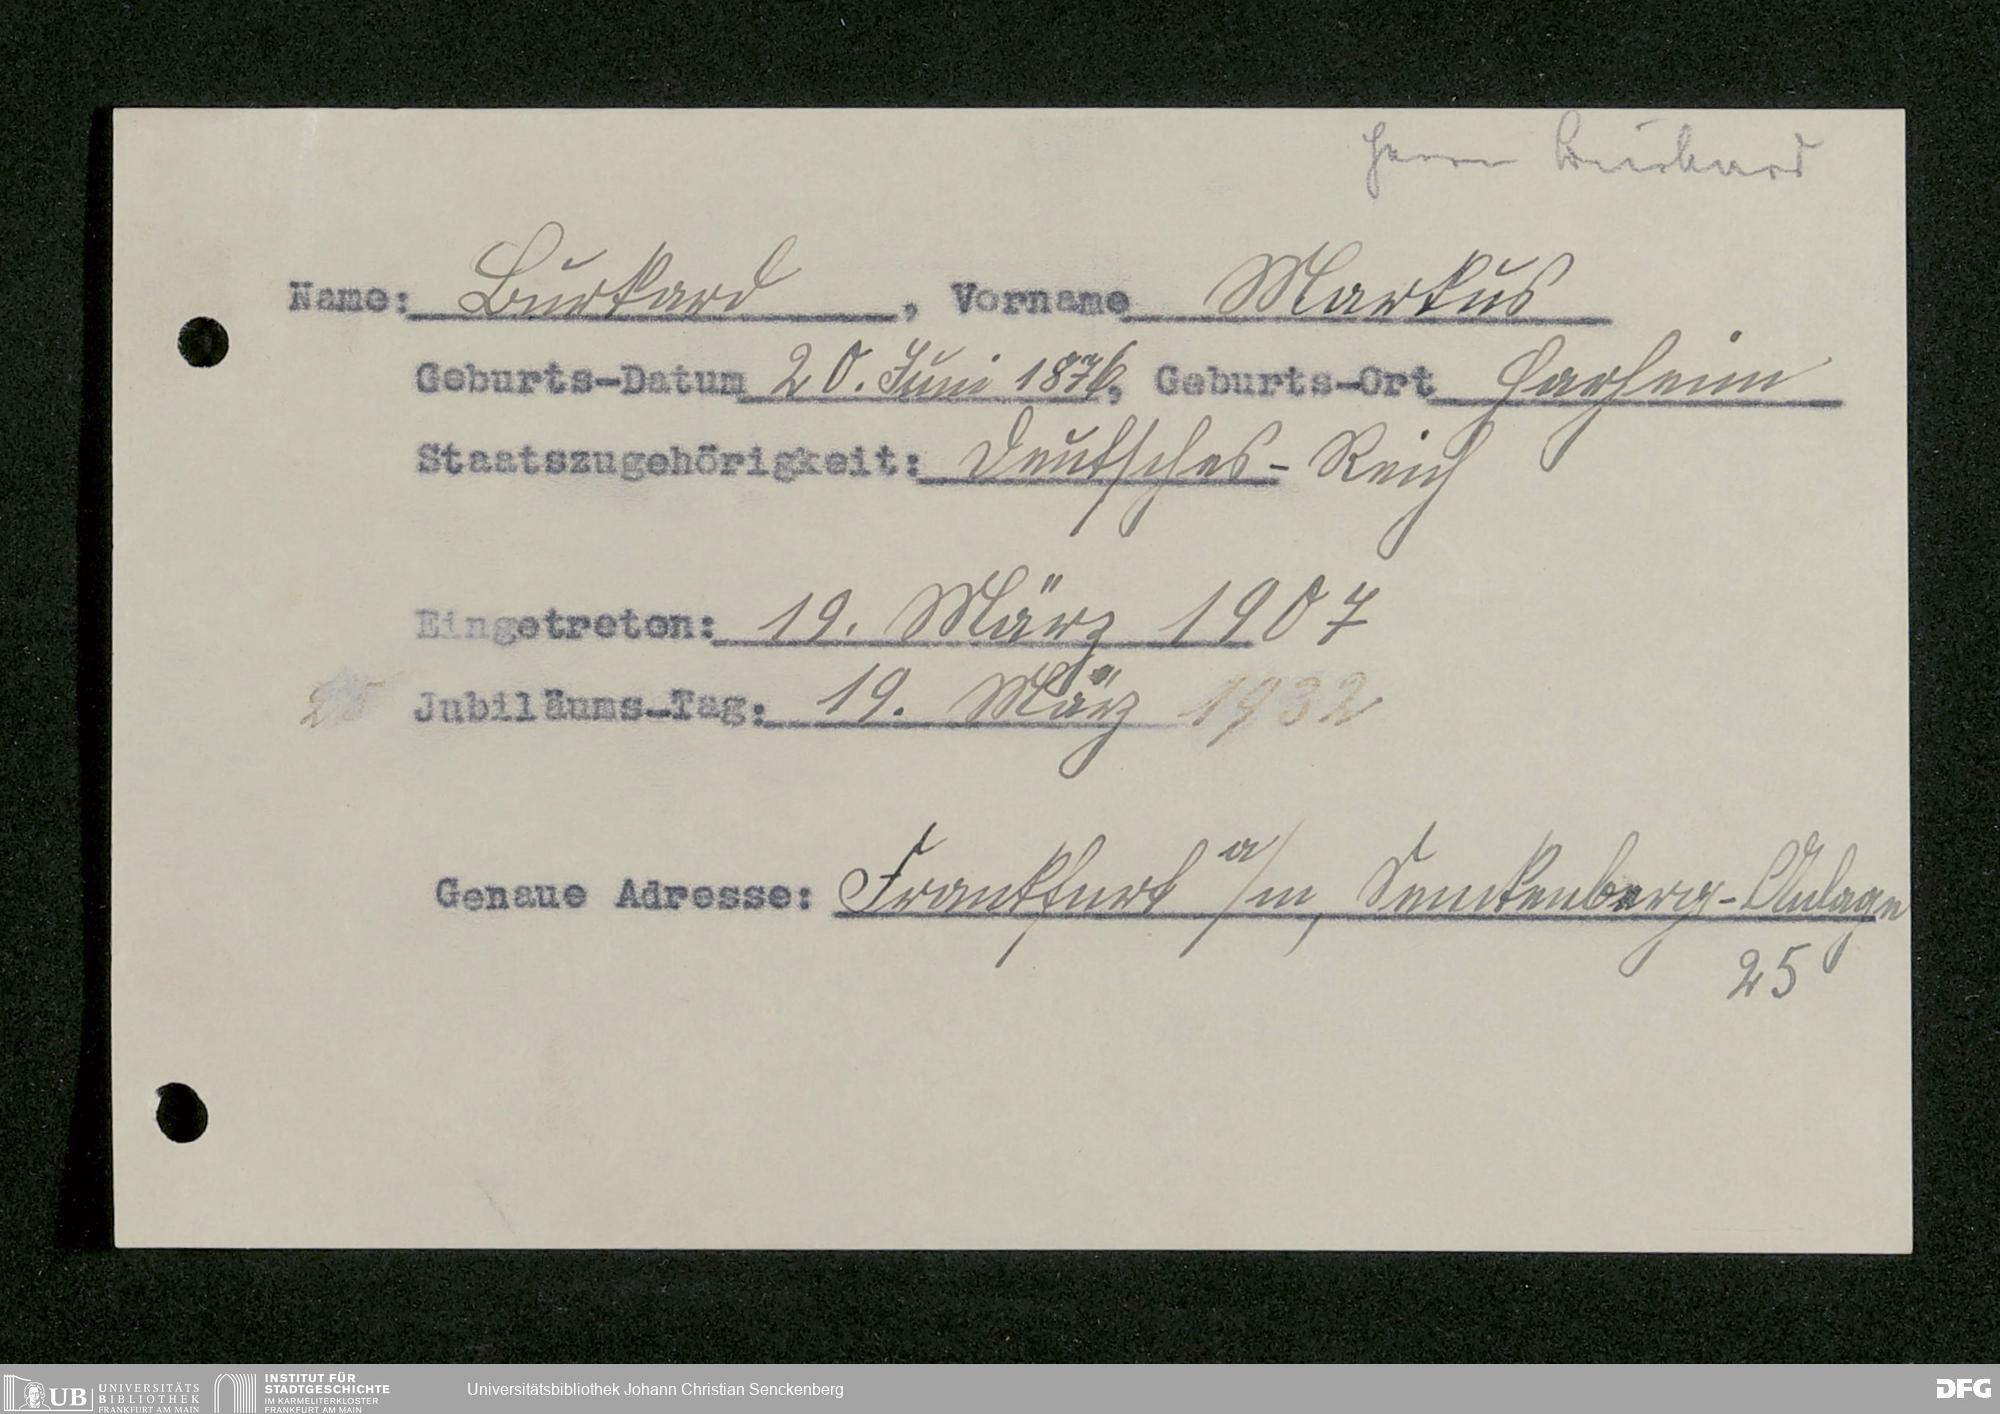 Herrn Burkard
Name: Burkard, Vorname Markus
Geburts-Datum 20. Juni 1876, Geburts-Ort Harheim
Staatszugehörigkeit: Deutsches-Reich
Eingetreten: 19. März 1907
25 Jubiläums-Tag: 19. März 1932
Genaue Adresse: Frankfurt a/m, Senckenberg-Anlage
25
UB UNIVERSITÄTS BIBLIOTHEK FRANKFURT AM MAIN
INSTITUT FÜR STADTGESCHICHTE IM KARMELITERKLOSTER FRANKFURT AM MAIN
Universitätsbibliothek Johann Christian Senckenberg
DFG